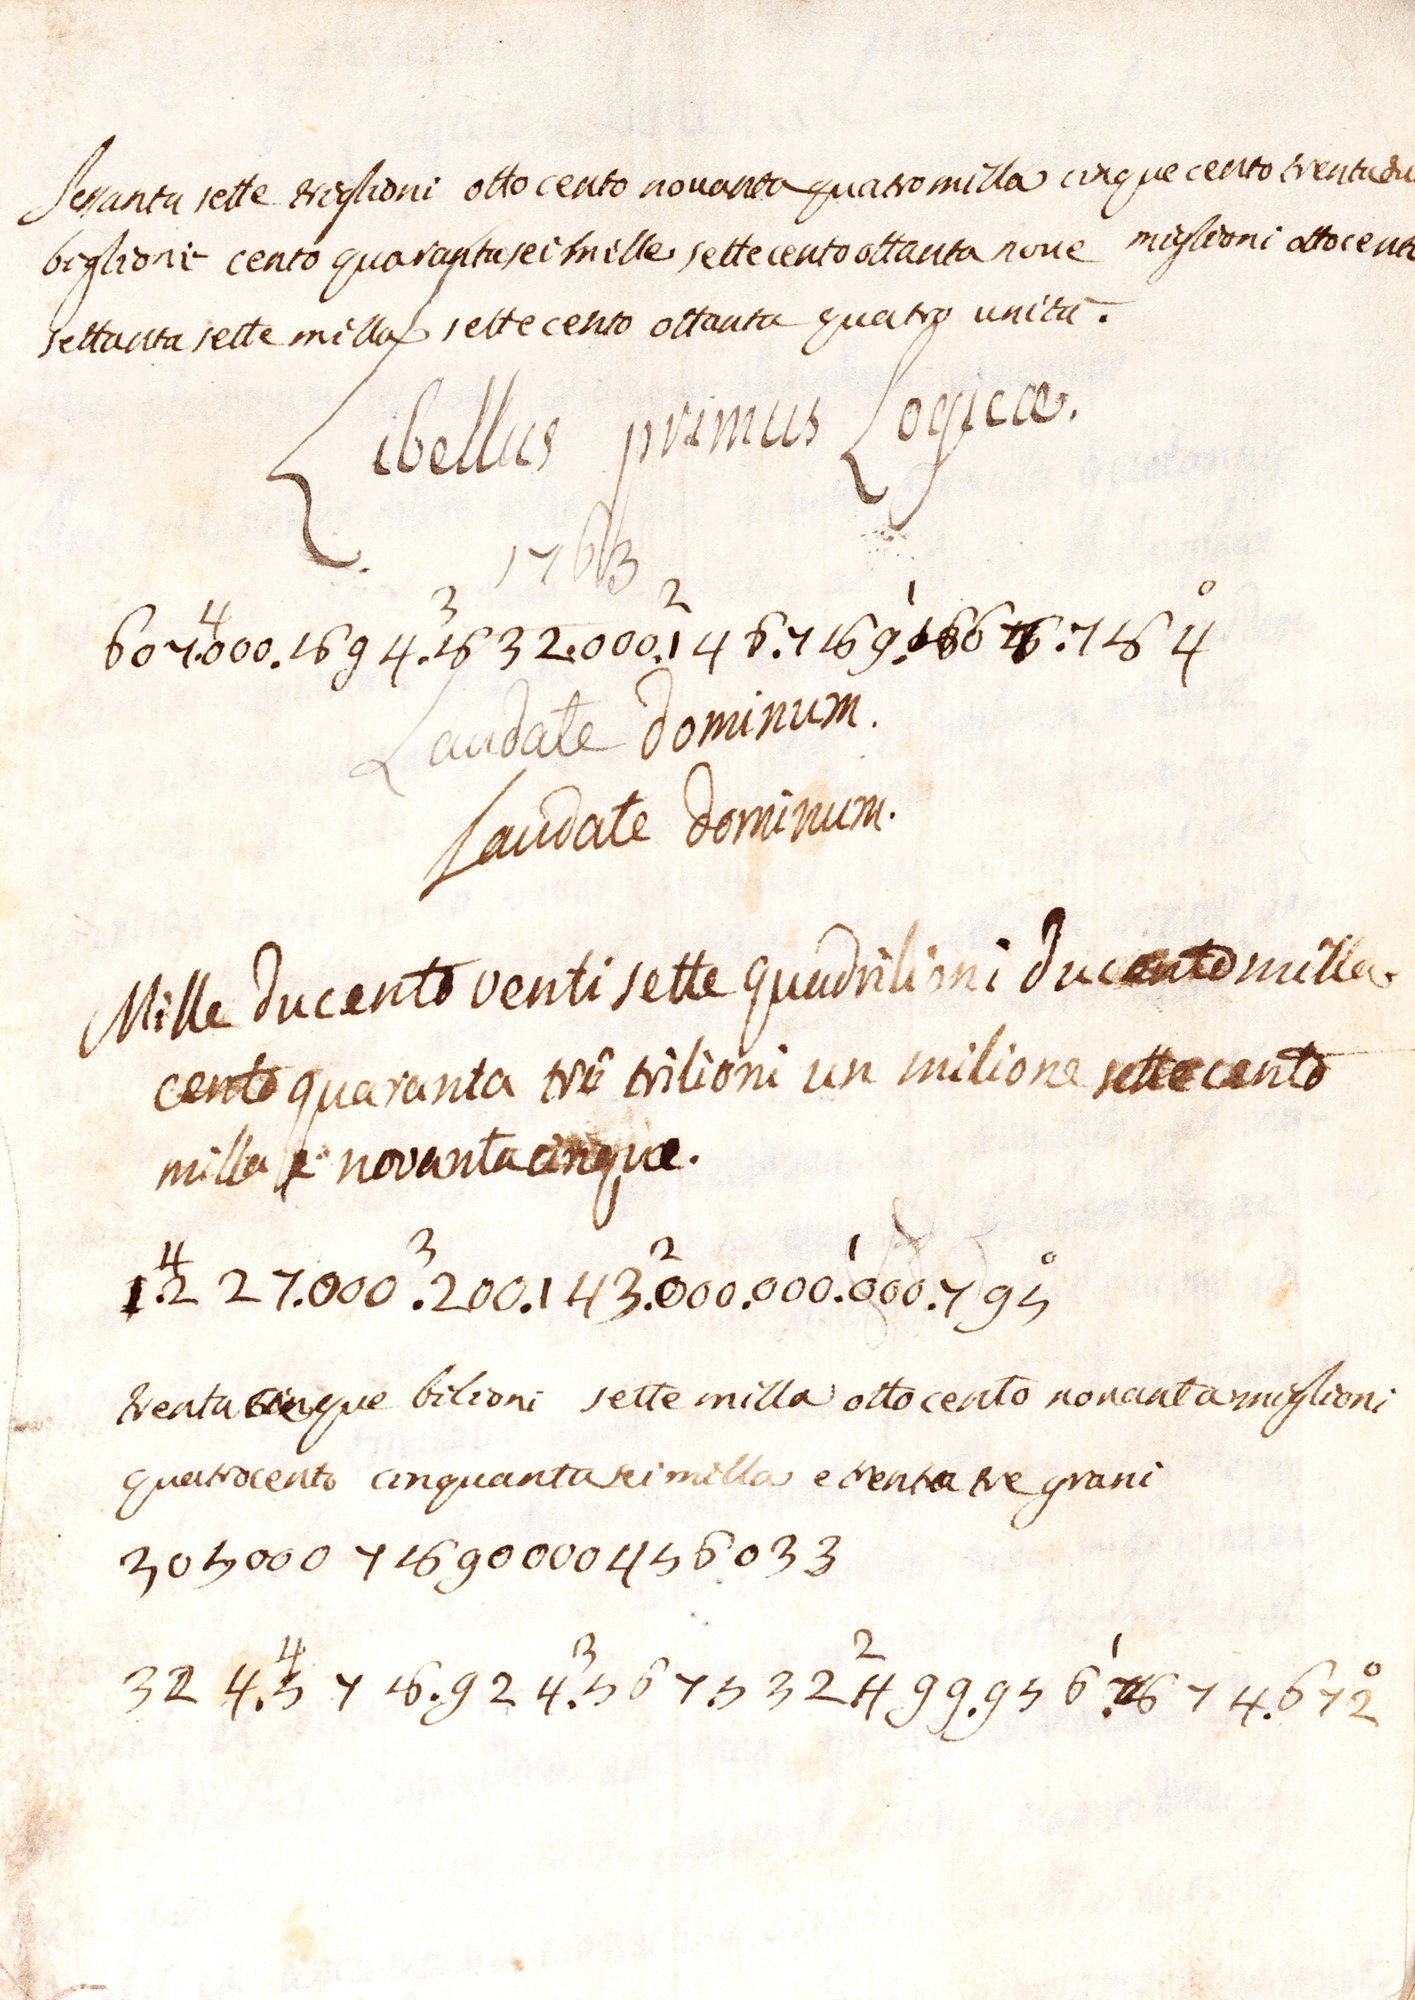 Sesanta sette triglioni otto cento novanta quatro milla cinque cento trenta du
biglioni cento quaranta sei mille sette cento ottanta nove miglioni otto cent
settanta sette milla sette cento ottanta quatro unità.
Libellus primus Logicæ.
1763
4 3 2 1 0
607.000.894.832.000.146.789.867.784
Laudate dominum.
Laudate dominum.
Mille ducento venti sette quadrilioni ducento milla
cento quaranta trè trilioni un milione sette cento
milla e novanta cinque.
4 3 2 1 0
1.227.000.200.143.000.000.000.795
trenta cinque bilioni sette milla otto cento novanta miglioni
quatrocento cinquanta sei milla e trenta tre grani
305000 7890000456033
4 3 2 1 0
324.578.924.567532499.956.874.672